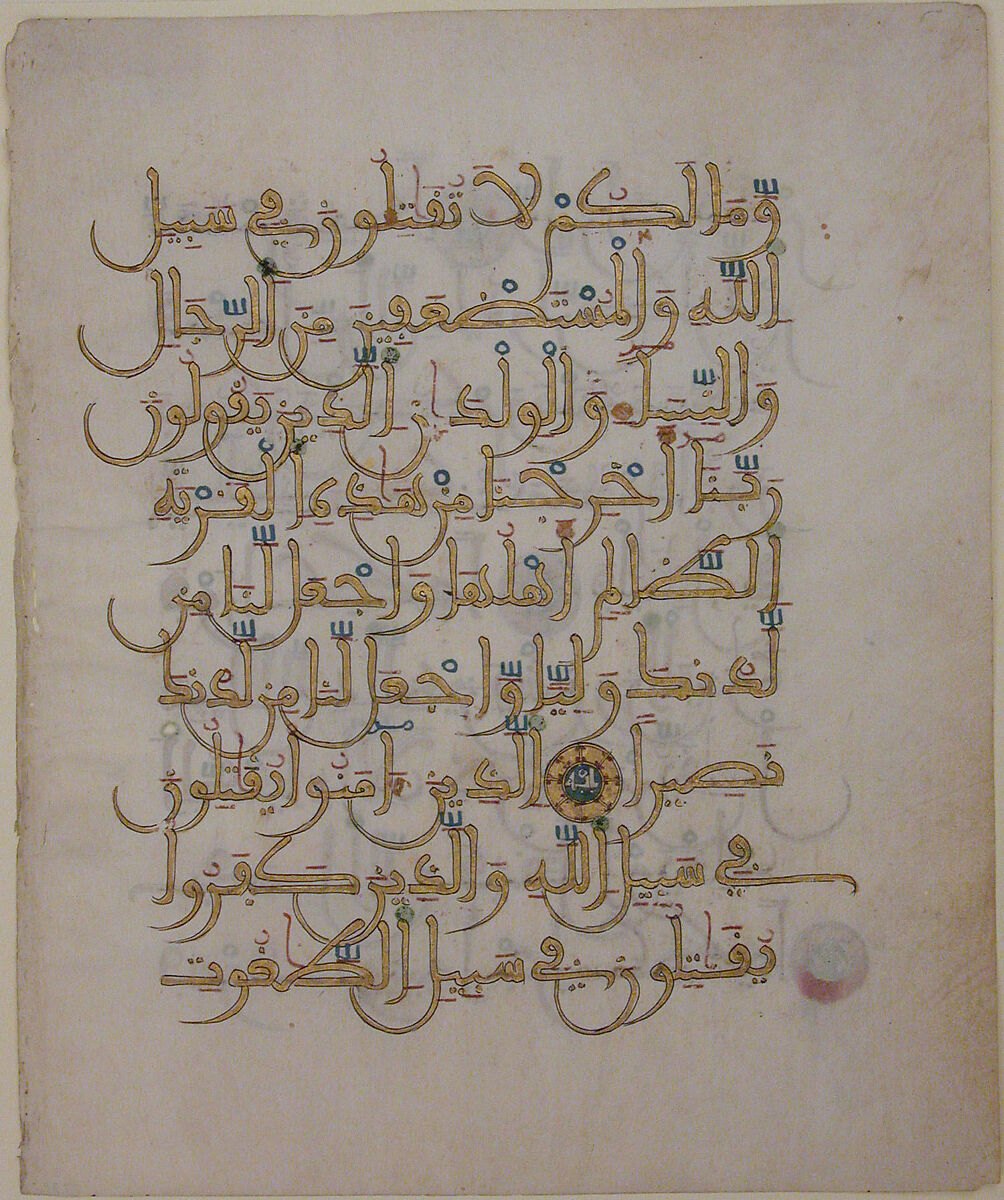 وَمَا لَكُمْ لَا تُقَٰتِلُونَ فِي سَبِيلِ
اللَّهِ وَالْمُسْتَضْعَفِينَ مِنَ الرِّجَالِ
وَالنِّسَاءِ وَالْوِلْدَٰنِ الَّذِينَ يَقُولُونَ
رَبَّنَا أَخْرِجْنَا مِنْ هَٰذِهِ الْقَرْيَةِ
الظَّالِمِ أَهْلُهَا وَاجْعَل لَّنَا مِن
لَّدُنكَ وَلِيًّا وَاجْعَل لَّنَا مِن لَّدُنكَ
نَصِيرًا الَّذِينَ ءَامَنُوا يُقَٰتِلُونَ
فِي سَبِيلِ اللَّهِ وَالَّذِينَ كَفَرُوا
يُقَٰتِلُونَ فِي سَبِيلِ الطَّٰغُوتِ